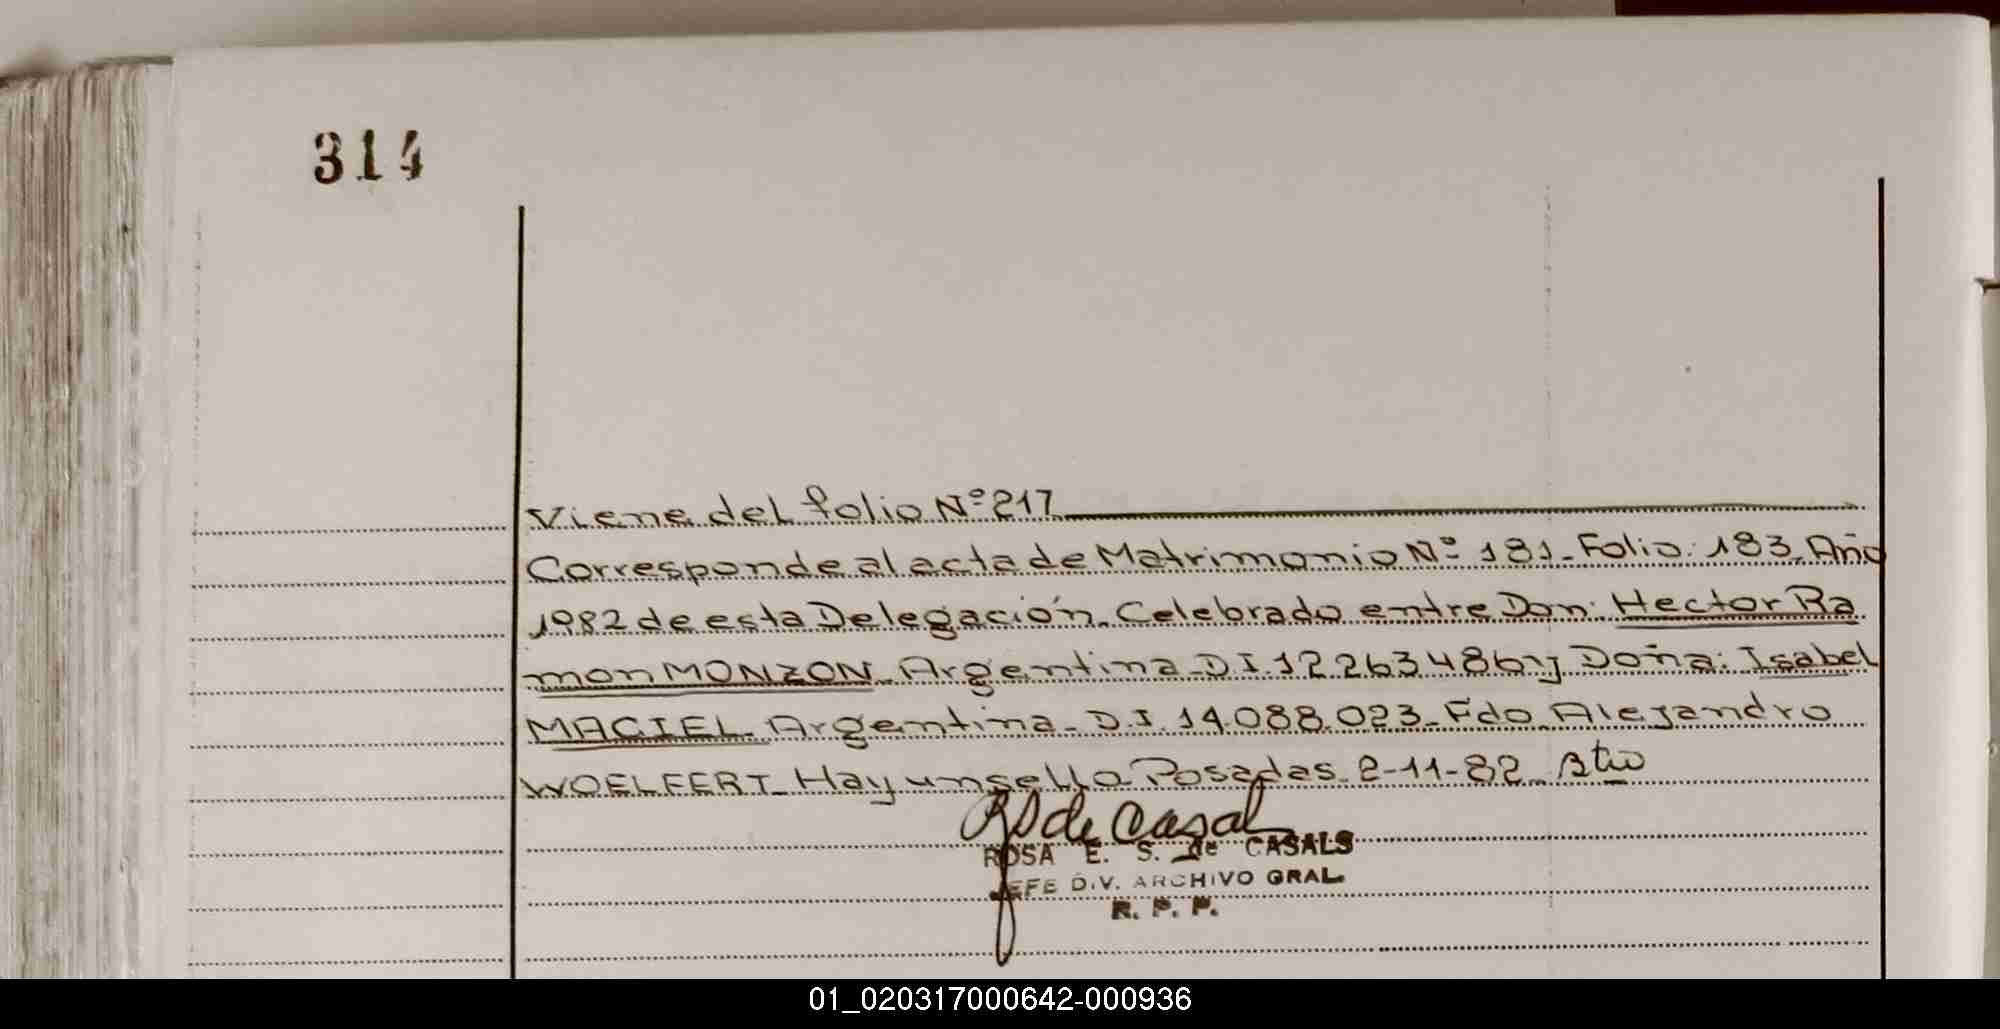 314
Viene del folio Nº 217
Corresponde al acta de Matrimonio Nº 181- Folio: 183- Año
1982 de esta Delegación. Celebrado entre Don: Hector Ra
mon MONZON- Argentina- D.I. 12.263.486 y Doña: Isabel
MACIEL- Argentina- D.I. 14.088.023- Fdo- Alejandro
WOELFERT- Hay un sello- Posadas- 2-11-82-
RS de Casal
ROSA E. S. de CASALS
JEFE DIV. ARCHIVO GRAL.
R. P. P.
01_020317000642-000936